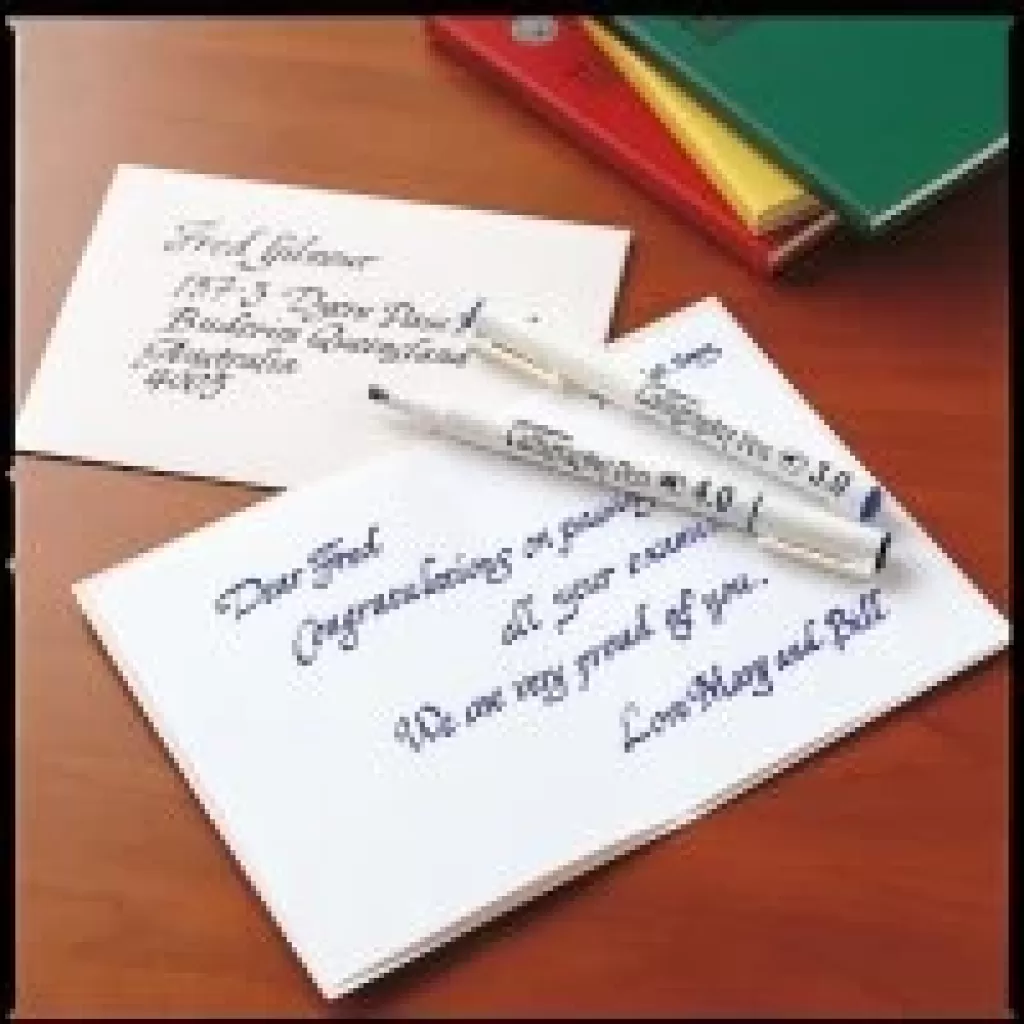 Fred Gilmour
137-3
Buderim Queensland
Australia
Calligraphy Pen 3.0
Calligraphy Pen 4.0
Dear Fred
Congratulations on passing
all your exams
We are very proud of you.
Love Mary and Bill